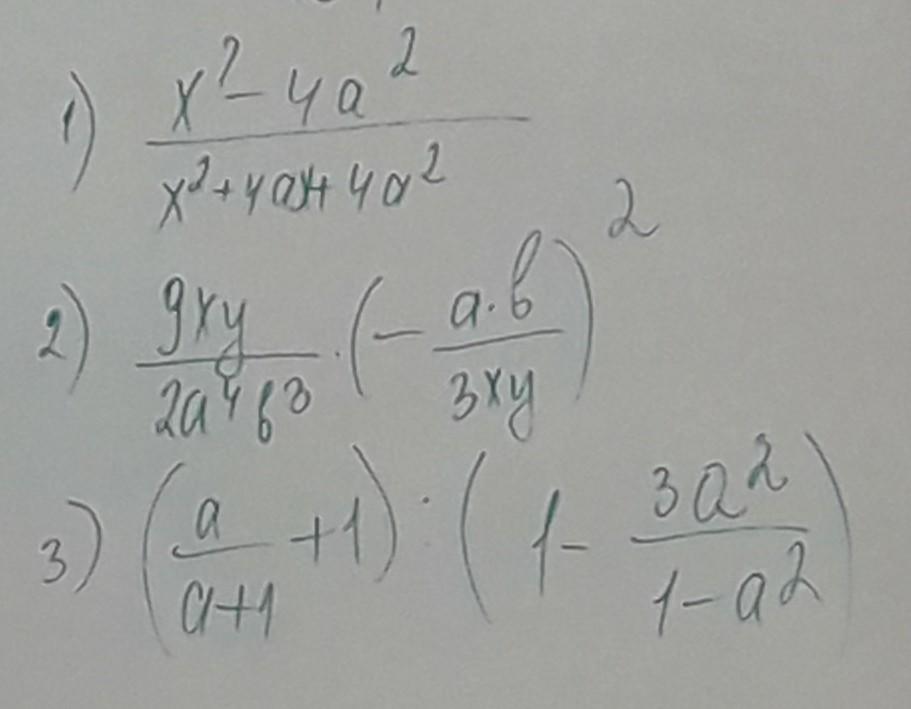 1) \frac{x^2 - 4a^2}{x^2 + 4ax + 4a^2}
2) \frac{9xy}{2a^4b^3} \cdot \left(-\frac{a \cdot b}{3xy}\right)^2
3) \left(\frac{a}{a+1} + 1\right) : \left(1 - \frac{3a^2}{1-a^2}\right)